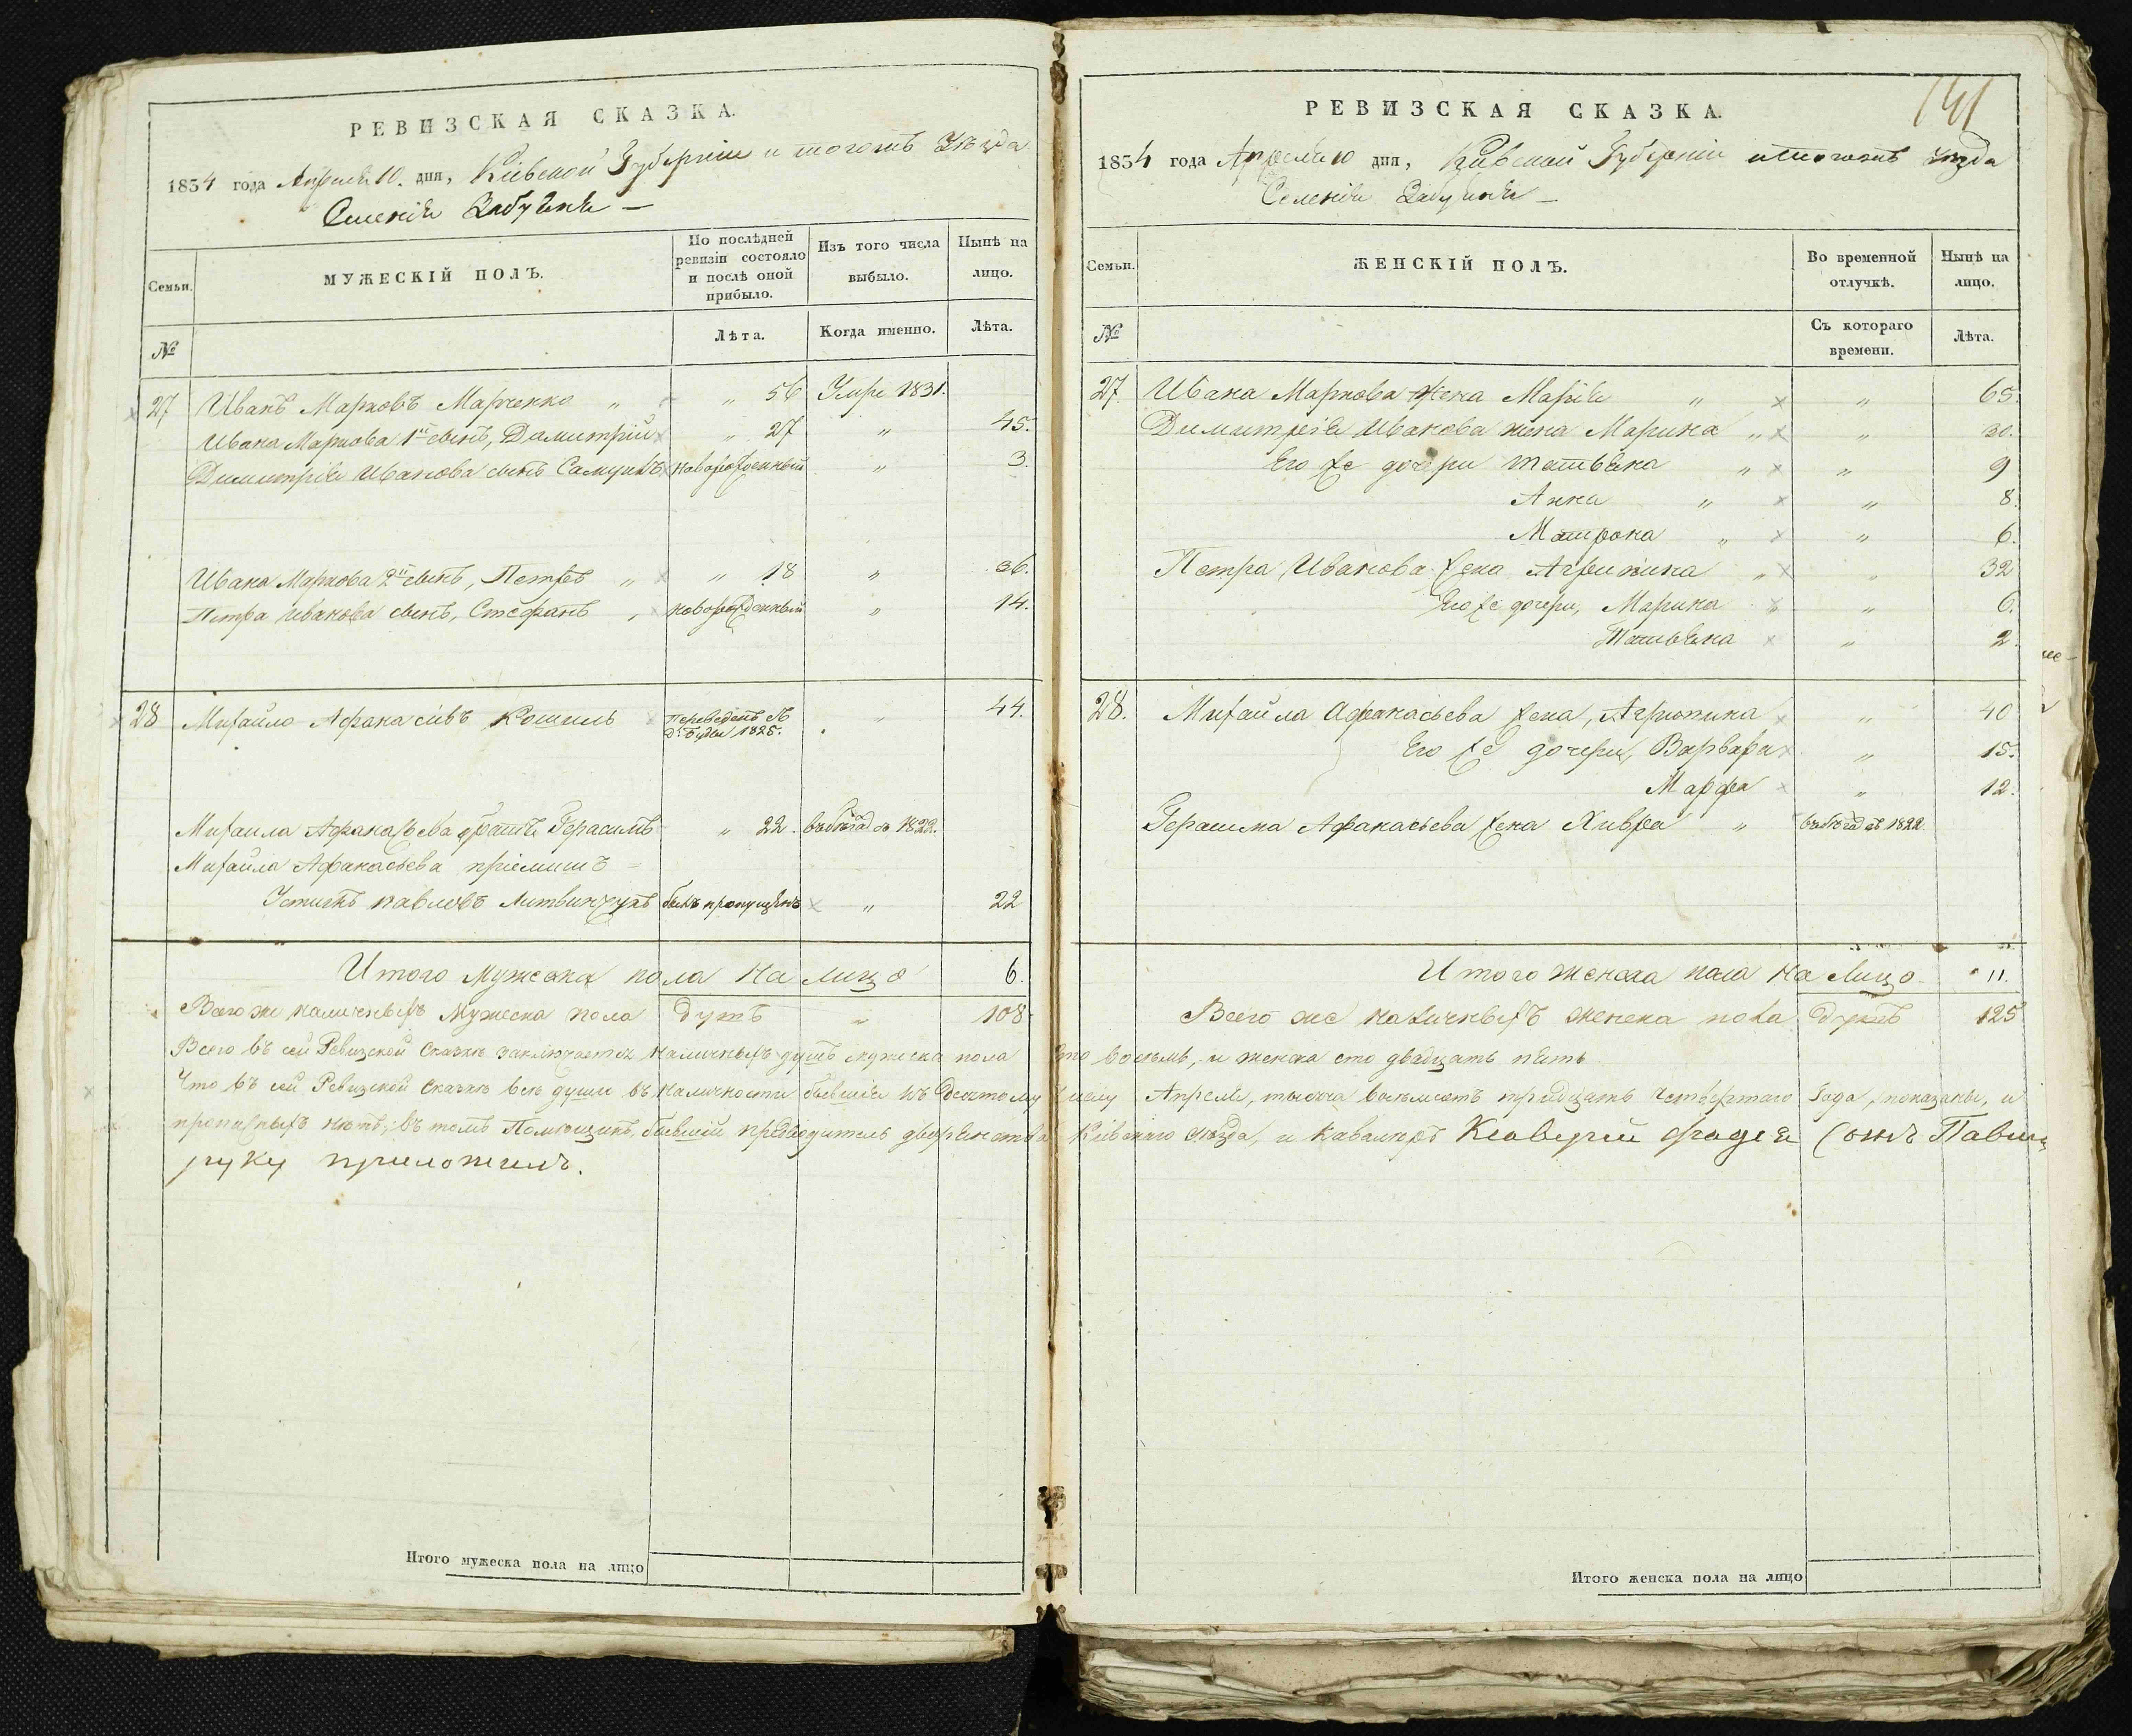 РЕВИЗСКАЯ СКАЗКА.
1834 года Апреля 10. дня, Кіевской Губерніи и тогожъ Уѣзда
Селенія
Семьи.
МУЖЕСКІЙ ПОЛЪ.
По послѣдней ревизіи состояло и послѣ оной прибыло.
Изъ того числа выбыло.
Нынѣ на лицо.
№
Лѣта.
Когда именно.
Лѣта.
27 Иванъ Марковъ Марченко " " 56 Умре 1831.
Ивана Маркова 1й сынъ, Димитрій " 27 " 45.
Димитрія Иванова сынъ Самуилъ новорожденный " 3.
Ивана Маркова 2й сынъ, Петръ " " 18 " 36.
Петра Иванова сынъ, Стефанъ " новорожденный " 14.
28 Михайло Афанасіевъ Кошиль Переведенъ съ Д. Буды 1825. " 44.
Михаила Афанасьева братъ Герасимъ " 22. въ бѣгахъ съ 1822.
Михаила Афанасьева пріемишъ
Устинъ Павловъ Литвинчукъ былъ пропущенъ " 22
Итого Мужеска пола на лицо 6.
Всего же наличныхъ Мужеска пола Душъ " 108
РЕВИЗСКАЯ СКАЗКА.
141
1834 года Апреля 10 дня, Кіевской Губерніи и тогожъ Уѣзда
Селенія
Семьи.
ЖЕНСКІЙ ПОЛЪ.
Во временной отлучкѣ.
Нынѣ на лицо.
№
Съ котораго времени.
Лѣта.
27. Ивана Маркова жена Марія " " 65.
Димитрія Иванова жена Марина " " 30.
Его же дочери Татьяна " " 9
Анна " " 8.
Матрона " " 6.
Петра Иванова жена Агрипина " " 32
Его же дочери, Марина " " 6.
Татьяна " 2.
28. Михайла Афанасьева жена, Агрипина " 40
Его же дочери, Варвара " 15.
Марфа " 12.
Герасима Афанасьева жена Хивря " въ бѣгахъ съ 1822.
Итого женска пола на Лицо " 11.
Всего же наличныхъ женска пола Душъ 125
Всего въ сей Ревизской Сказкѣ заключается наличныхъ душъ мужеска пола сто восемь, и женска сто двадцать пять
Что въ сей Ревизской Сказкѣ всѣ души въ наличности бывшія къ Десятому числу Апреля, тысяча восемьсотъ тридцать четвертаго Года, показаны, и
прописныхъ нѣтъ, въ томъ Помѣщикъ, бывшій предводитель дворянства Кіевскаго Уѣзда, и Кавалеръ Ксаверій Фадея Сынъ
руку приложилъ.
Итого мужеска пола на лицо
Итого женска пола на лицо